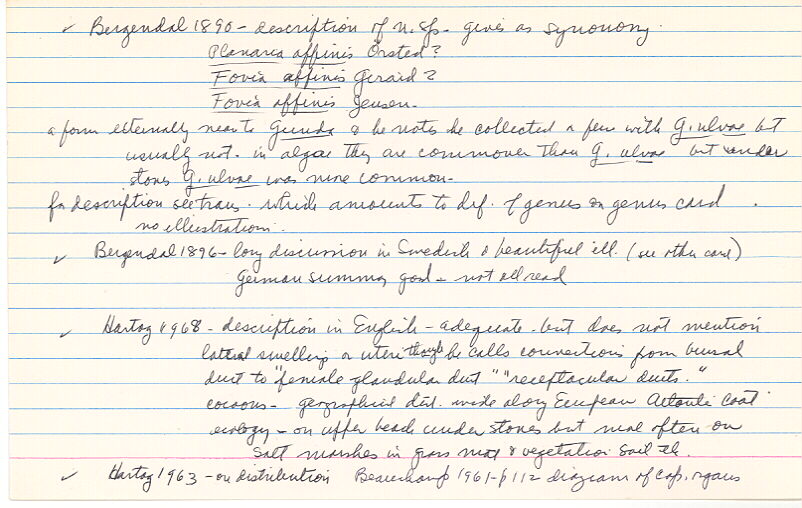 ✓ Bergendal 1890 - description of n. sp. gives as synonomy.
Planaria affinis Örsted?
Fovia affinis Giraid?
Fovia affinis Jensen.
a form externally near to Gunda & he notes he collected a few with G. ulvae bt
usually not. in algae they are commoner than G. ulvae but under
stones G. ulvae was more common-
for description see trans. which amounts to def. of genus on genus card.
no illustration.
✓ Bergendal 1896 - long discussion in Swedish & beautiful ill. (see other card)
German summary good - not all read
✓ Hartog 1968 - description in English - adequate. but does not mention
lateral swelling or uteri though he calls connections from bursal
duct to "female glandular duct" "receptacular ducts."
cocoons - geographical dist. wide along European Atlantic Coast
ecology - on upper beach under stones but more often on
Salt marshes in grass mat & vegetation soil
✓ Hartog 1963 - on distribution Beauchamp 1961 - p 112 diagram of cop. organs